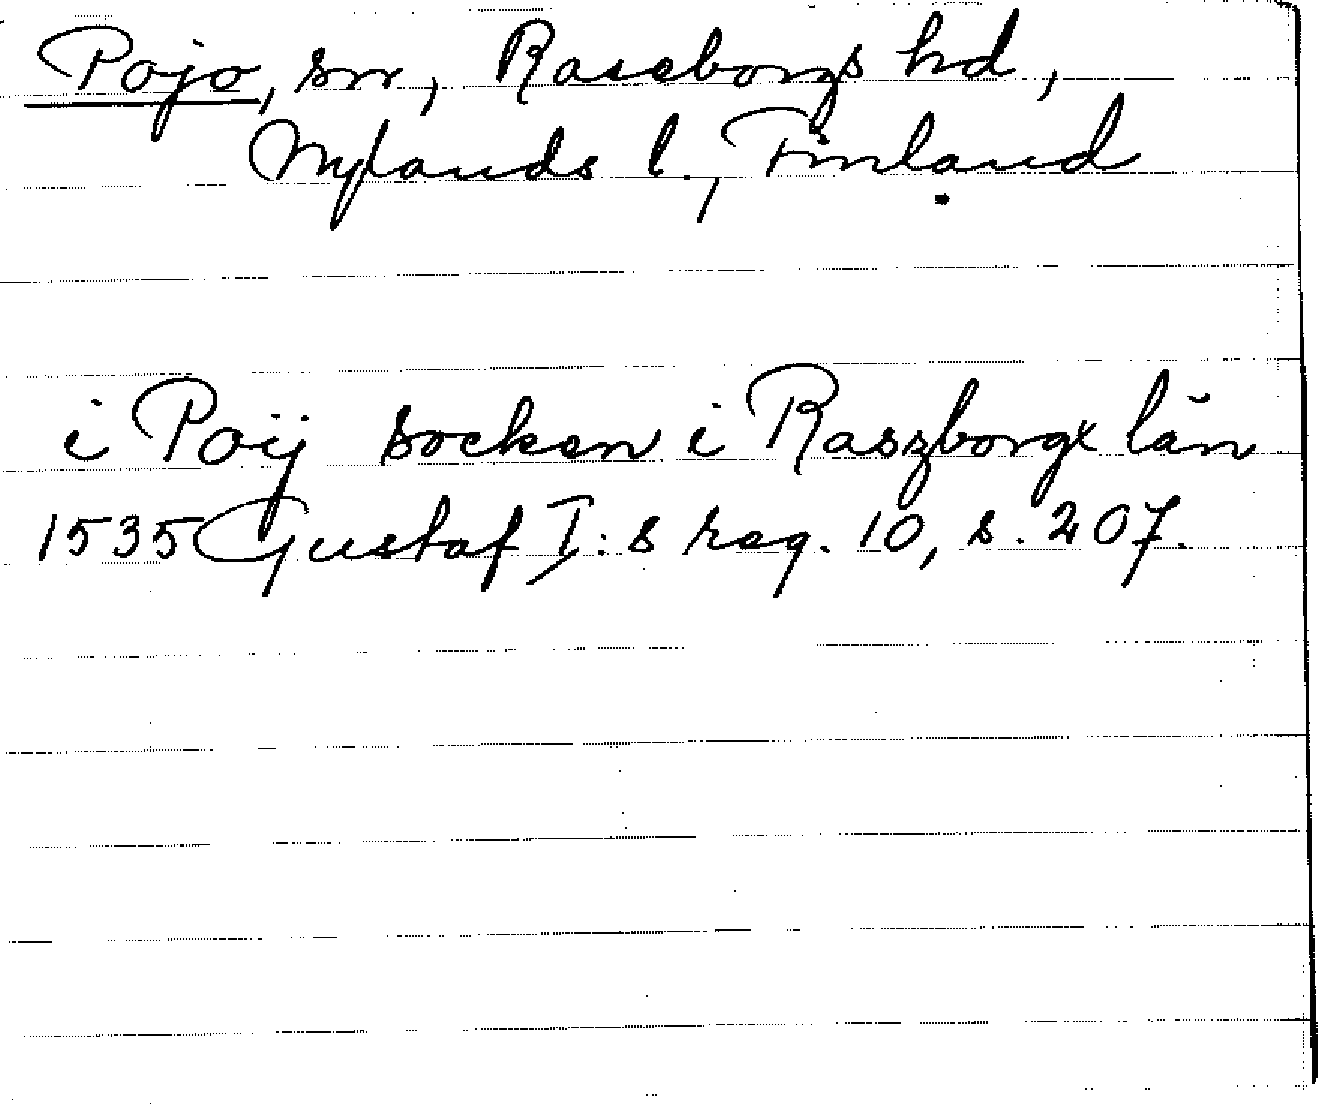 Pojo, sn, Raseborgs hd,
Nylands l., Finland
i Poij socken i Raszborgx län
1535 Gustaf I:s reg. 10, s. 207.